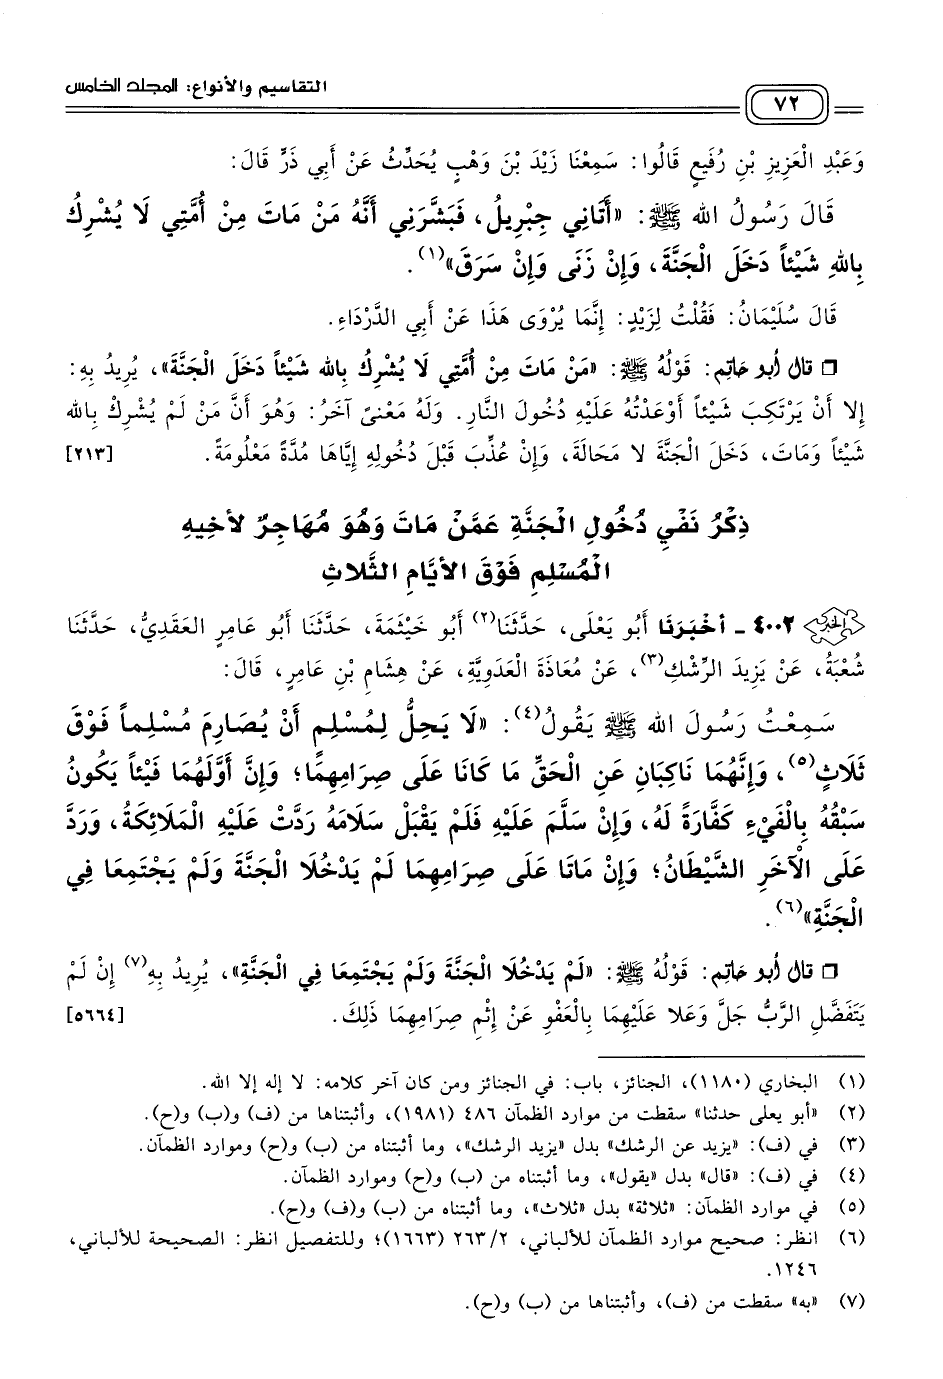 التقاسيم والأنواع: المجلد الخامس
٧٢
وَعَبْدِ الْعَزِيزِ بْنِ رُفَيعٍ قَالُوا: سَمِعْنَا زَيْدَ بْنَ وَهْبٍ يُحَدِّثُ عَنْ أَبِي ذَرٍّ قَالَ:
قَالَ رَسُولُ الله ﷺ: «أَتَانِي جِبْرِيلُ، فَبَشَّرَنِي أَنَّهُ مَنْ مَاتَ مِنْ أُمَّتِي لَا يُشْرِكُ
بِاللهِ شَيْئاً دَخَلَ الْجَنَّةَ، وَإِنْ زَنَى وَإِنْ سَرَقَ»(١).
قَالَ سُلَيْمَانُ: فَقُلْتُ لِزَيْدٍ: إِنَّمَا يُرْوَى هَذَا عَنْ أَبِي الدَّرْدَاءِ.
❒ قال أبو حاتِم: قَوْلُهُ ﷺ: «مَنْ مَاتَ مِنْ أُمَّتِي لَا يُشْرِكُ بِالله شَيْئاً دَخَلَ الْجَنَّةَ»، يُرِيدُ بِهِ:
إِلا أَنْ يَرْتَكِبَ شَيْئاً أَوْعَدْتُهُ عَلَيْهِ دُخُولَ النَّارِ. وَلَهُ مَعْنىً آخَرُ: وَهُوَ أَنَّ مَنْ لَمْ يُشْرِكْ بِالله
شَيْئاً وَمَاتَ، دَخَلَ الْجَنَّةَ لا مَحَالَةَ، وَإِنْ عُذِّبَ قَبْلَ دُخُولِهِ إِيَّاهَا مُدَّةً مَعْلُومَةً. [٢١٣]
ذِكْرُ نَفْيِ دُخُولِ الْجَنَّةِ عَمَّنْ مَاتَ وَهُوَ مُهَاجِرٌ لأخِيهِ
الْمُسْلِمِ فَوْقَ الأيَّامِ الثَّلاثِ
الخبر ٤٠٠٢ - أَخْبَرَنَا أَبُو يَعْلَى، حَدَّثَنَا(٢) أَبُو خَيْثَمَةَ، حَدَّثَنَا أَبُو عَامِرٍ العَقَدِيُّ، حَدَّثَنَا
شُعْبَةُ، عَنْ يَزِيدَ الرِّشْكِ(٣)، عَنْ مُعَاذَةَ الْعَدَوِيَّةِ، عَنْ هِشَامِ بْنِ عَامِرٍ، قَالَ:
سَمِعْتُ رَسُولَ الله ﷺ يَقُولُ(٤): «لَا يَحِلُّ لِمُسْلِمٍ أَنْ يُصَارِمَ مُسْلِماً فَوْقَ
ثَلَاثٍ(٥)، وَإِنَّهُمَا نَاكِبَانِ عَنِ الْحَقِّ مَا كَانَا عَلَى صِرَامِهِمَا؛ وَإِنَّ أَوَّلَهُمَا فَيْئاً يَكُونُ
سَبْقُهُ بِالْفَيْءِ كَفَّارَةً لَهُ، وَإِنْ سَلَّمَ عَلَيْهِ فَلَمْ يَقْبَل سَلَامَهُ رَدَّتْ عَلَيْهِ الْمَلَائِكَةُ، وَرَدَّ
عَلَى الْآخَرِ الشَّيْطَانُ؛ وَإِنْ مَاتَا عَلَى صِرَامِهِمَا لَمْ يَدْخُلَا الْجَنَّةَ وَلَمْ يَجْتَمِعَا فِي
الْجَنَّةِ»(٦).
❒ قال أبو حاتِم: قَوْلُهُ ﷺ: «لَمْ يَدْخُلَا الْجَنَّةَ وَلَمْ يَجْتَمِعَا فِي الْجَنَّةِ»، يُرِيدُ بِهِ(٧) إِنْ لَمْ
يَتَفَضَّلِ الرَّبُّ جَلَّ وَعَلا عَلَيْهِمَا بِالْعَفْوِ عَنْ إِثْمِ صِرَامِهِمَا ذَلِكَ. [٥٦٦٤]
(١) البخاري (١١٨٠)، الجنائز، باب: في الجنائز ومن كان آخر كلامه: لا إله إلا الله.
(٢) «أبو يعلى حدثنا» سقطت من موارد الظمآن ٤٨٦ (١٩٨١)، وأثبتناها من (ف) و(ب) و(ح).
(٣) في (ف): «يزيد عن الرشك» بدل «يزيد الرشك»، وما أثبتناه من (ب) و(ح) وموارد الظمآن.
(٤) في (ف): «قال» بدل «يقول»، وما أثبتناه من (ب) و(ح) وموارد الظمآن.
(٥) في موارد الظمآن: «ثلاثة» بدل «ثلاث»، وما أثبتناه من (ب) و(ف) و(ح).
(٦) انظر: صحيح موارد الظمآن للألباني، ٢٦٣/٢ (١٦٦٣)؛ وللتفصيل انظر: الصحيحة للألباني،
١٢٤٦.
(٧) «به» سقطت من (ف)، وأثبتناها من (ب) و(ح).